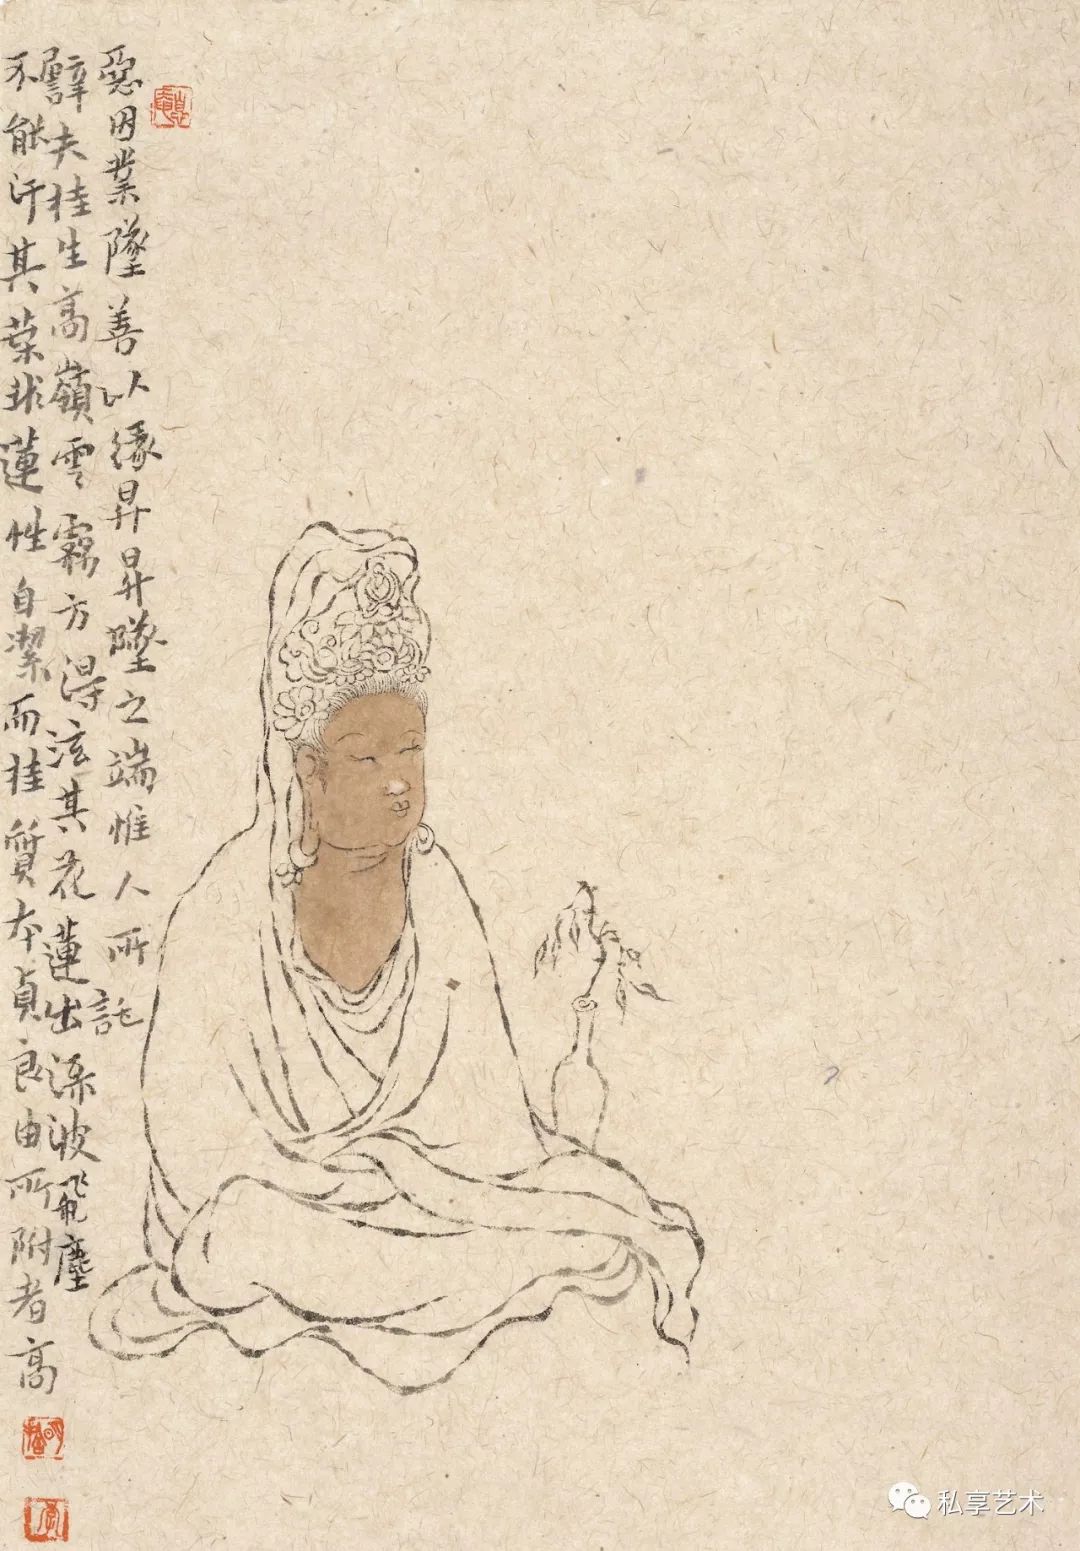 惡因業墜善以緣昇昇墜之端惟人所託
譬夫桂生高嶺雲露方得泫其花蓮出淥波飛塵
不能汙其葉非蓮性自潔而桂質本貞良由所附者高
私享艺术